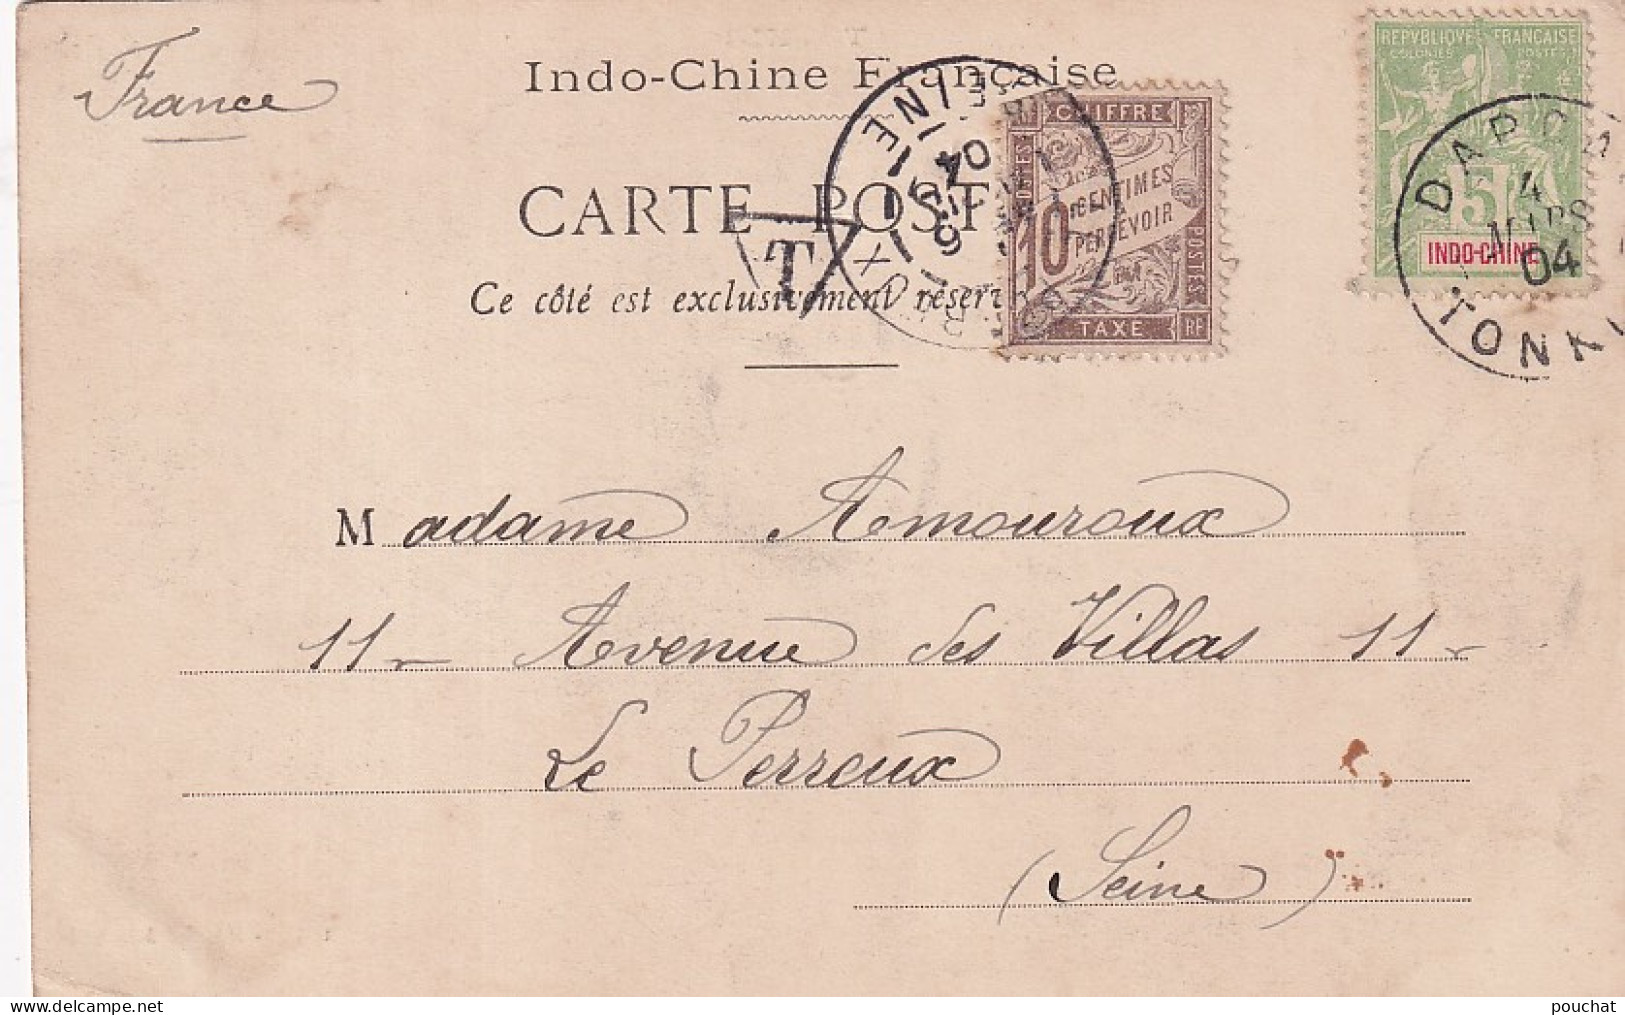 France
Indo-Chine Française
CARTE POST
Ce côté est exclusivement réser
T
EINE
04
9
CHIFFRE
10 CENTIMES
PERCEVOIR
POSTES
TAXE
RF
REPVBLIQVE FRANÇAISE
COLONIES POSTES
5
INDO-CHINE
4
MARS
04
TONK
Madame Amouroux
11 Avenue des Villas 11
Le Perreux
(Seine)
pouchat